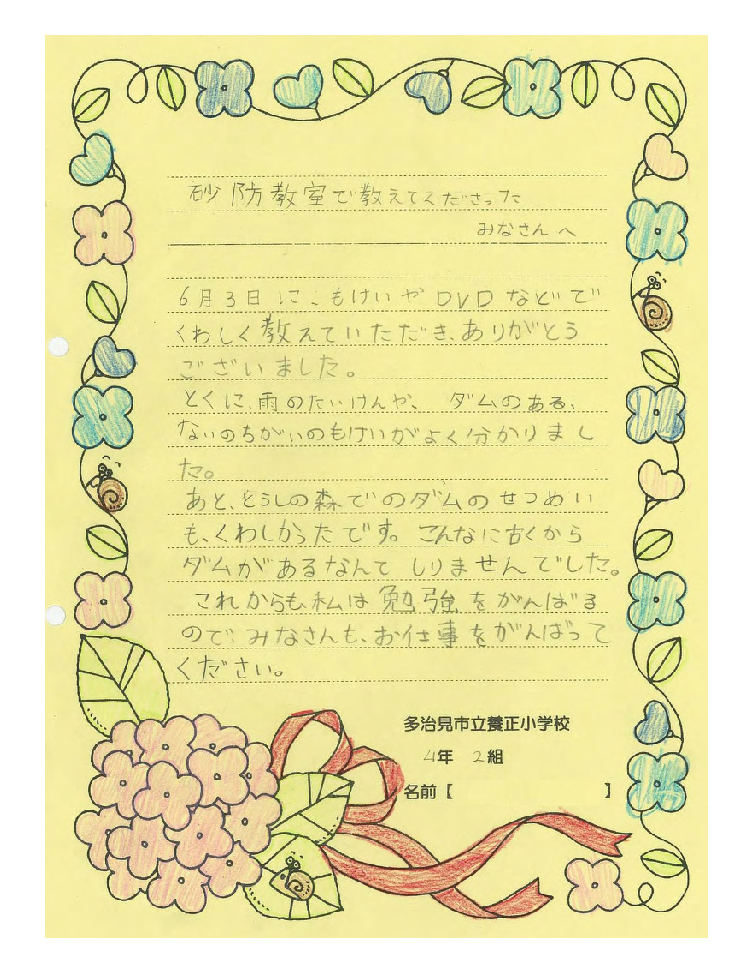 砂防教室で教えてくださった
みなさんへ
6月3日に、もけいやDVDなどで
くわしく教えていただき、ありがとう
ございました。
とくに、雨のたいけんや、ダムのある、
ないのちがいのもけいがよく分かりまし
た。
あと、どうしの森でのダムのせつめい
も、くわしかったです。こんなに古くから
ダムがあるなんてしりませんでした。
これからも、私は勉強をがんばる
ので、みなさんも、お仕事をがんばって
ください。
多治見市立養正小学校
4年 2組
名前【 】